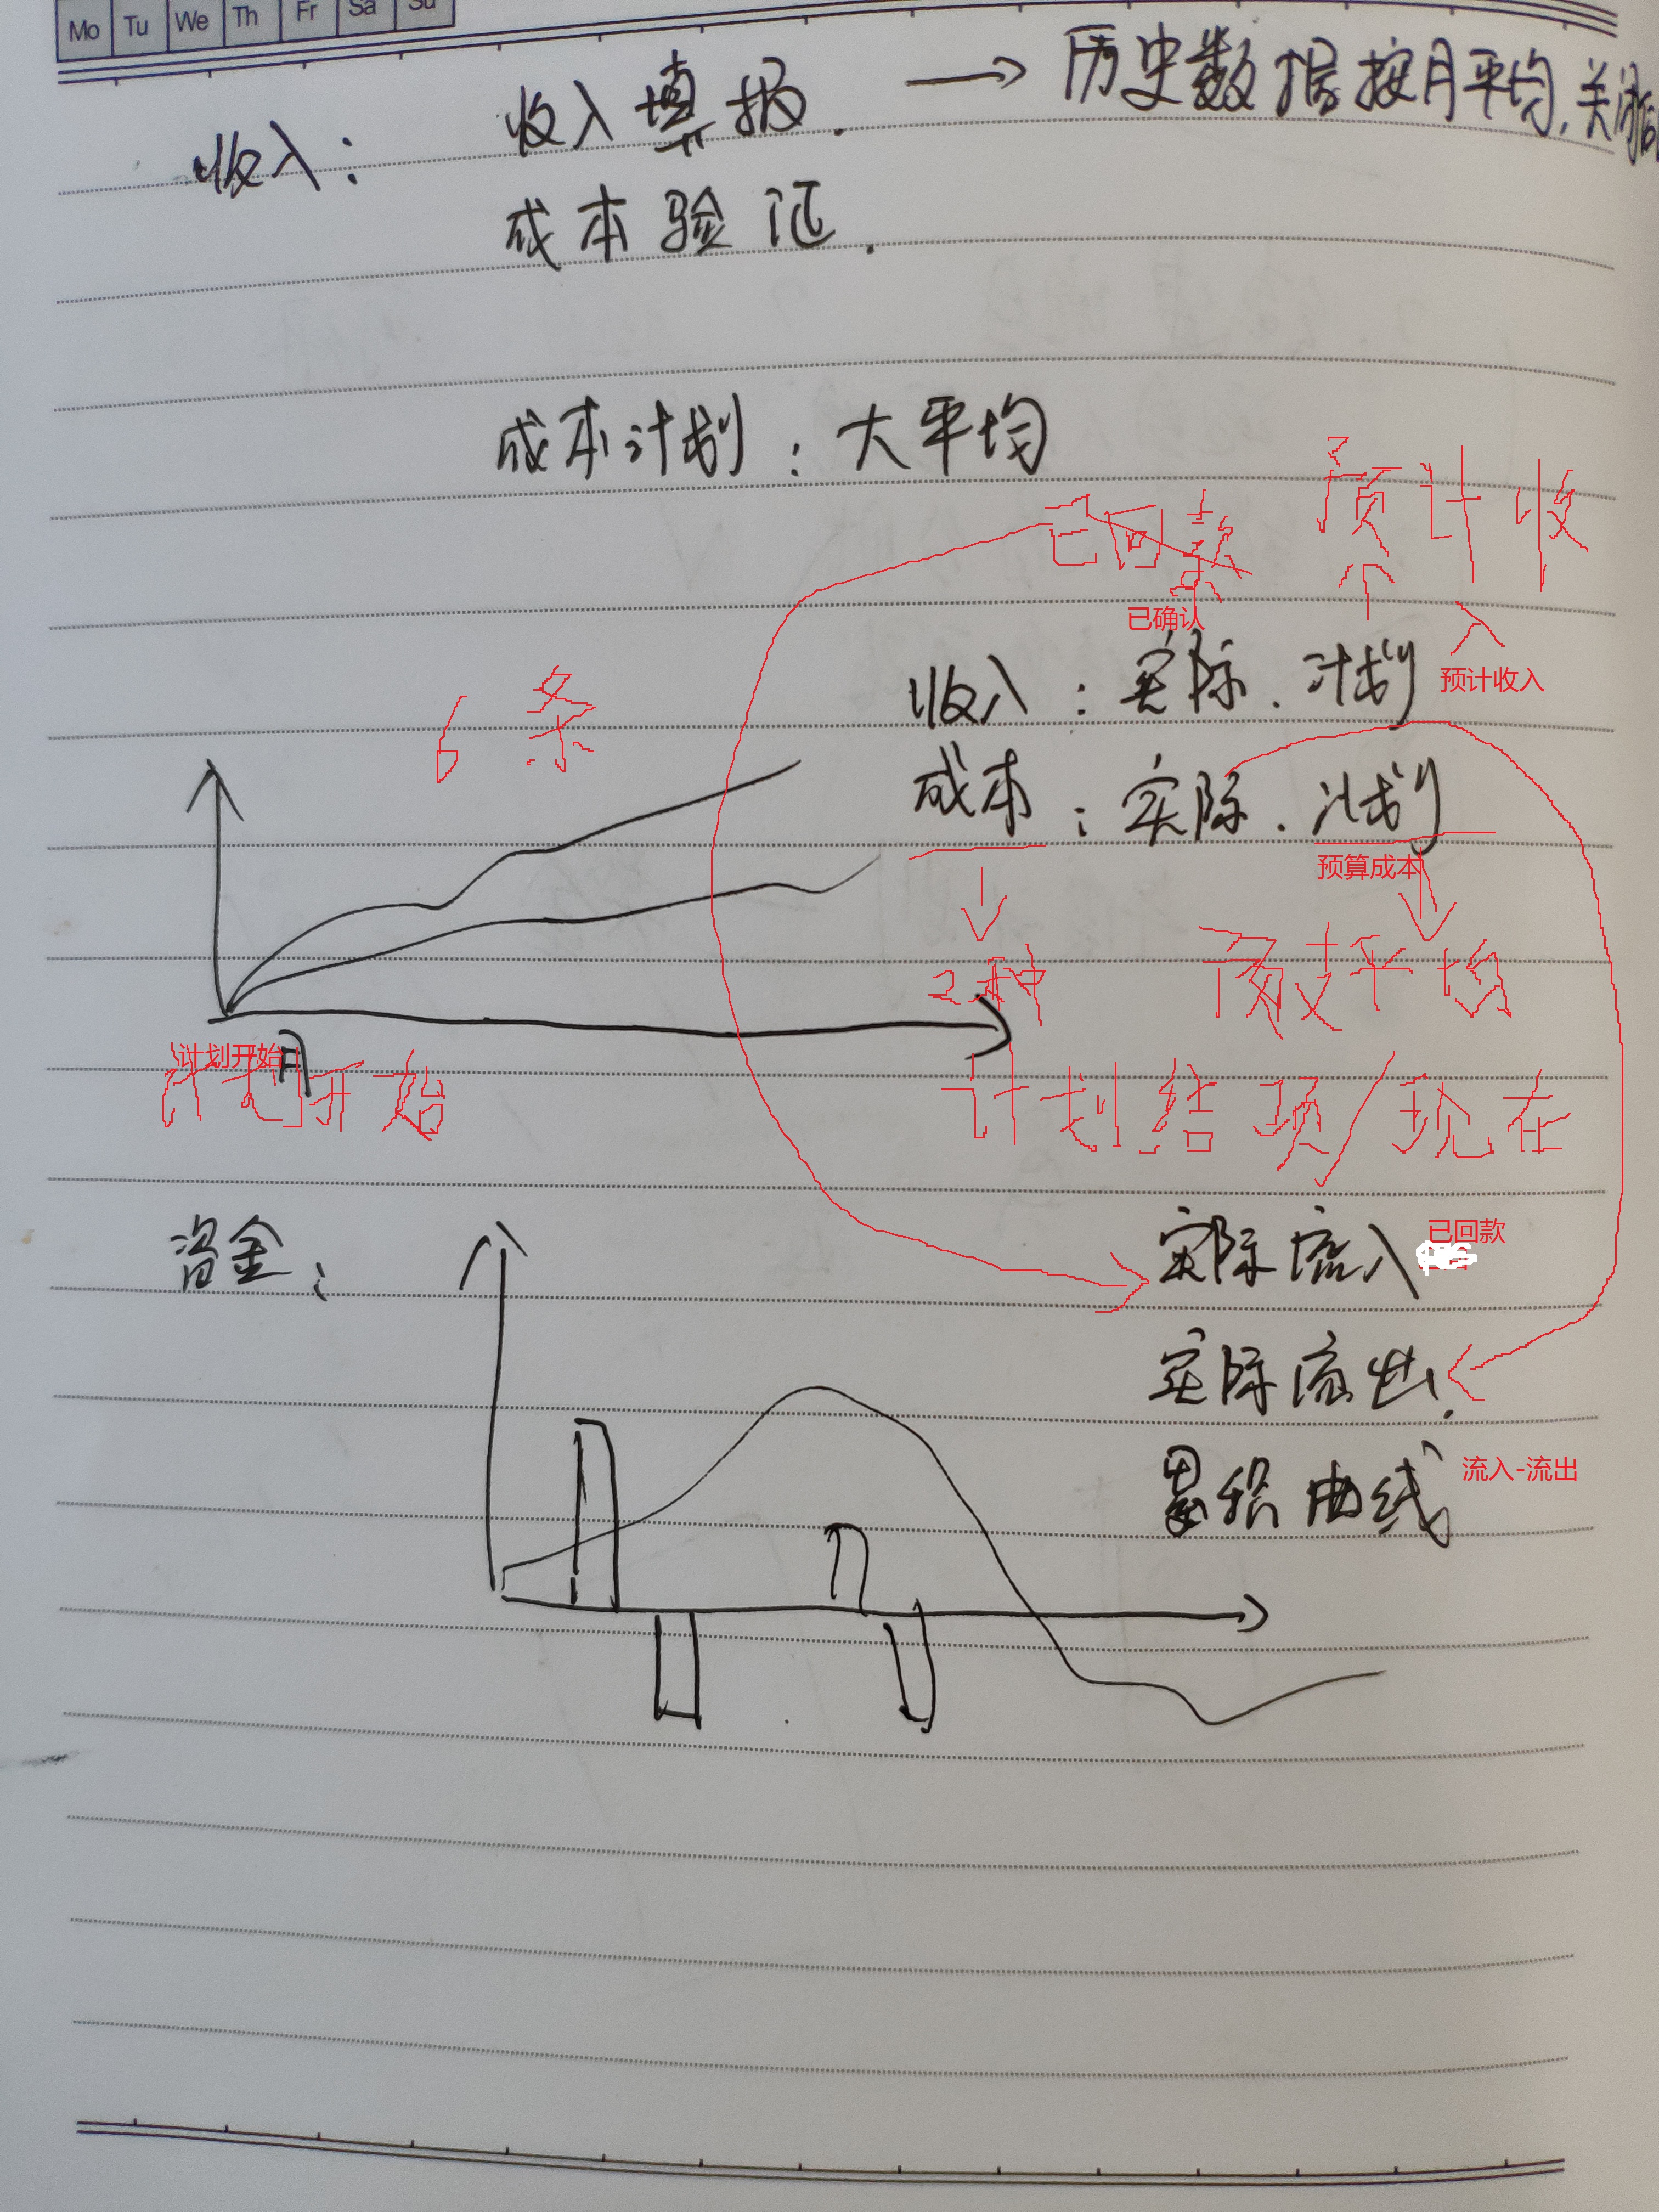 Mo Tu We Th Fr Sa Su
收入： 收入填报. → 历史数据按月平均, 关闭
成本验证.
成本计划：大平均
已回款 预计收入
已确认
收入：实际. 计划 预计收入
6条
成本：实际. 计划
预算成本
2种 平均
计划开始 月
计划开始 计划结项/现在
资金： 实际流入 已回款
实际流出.
累积曲线 流入-流出